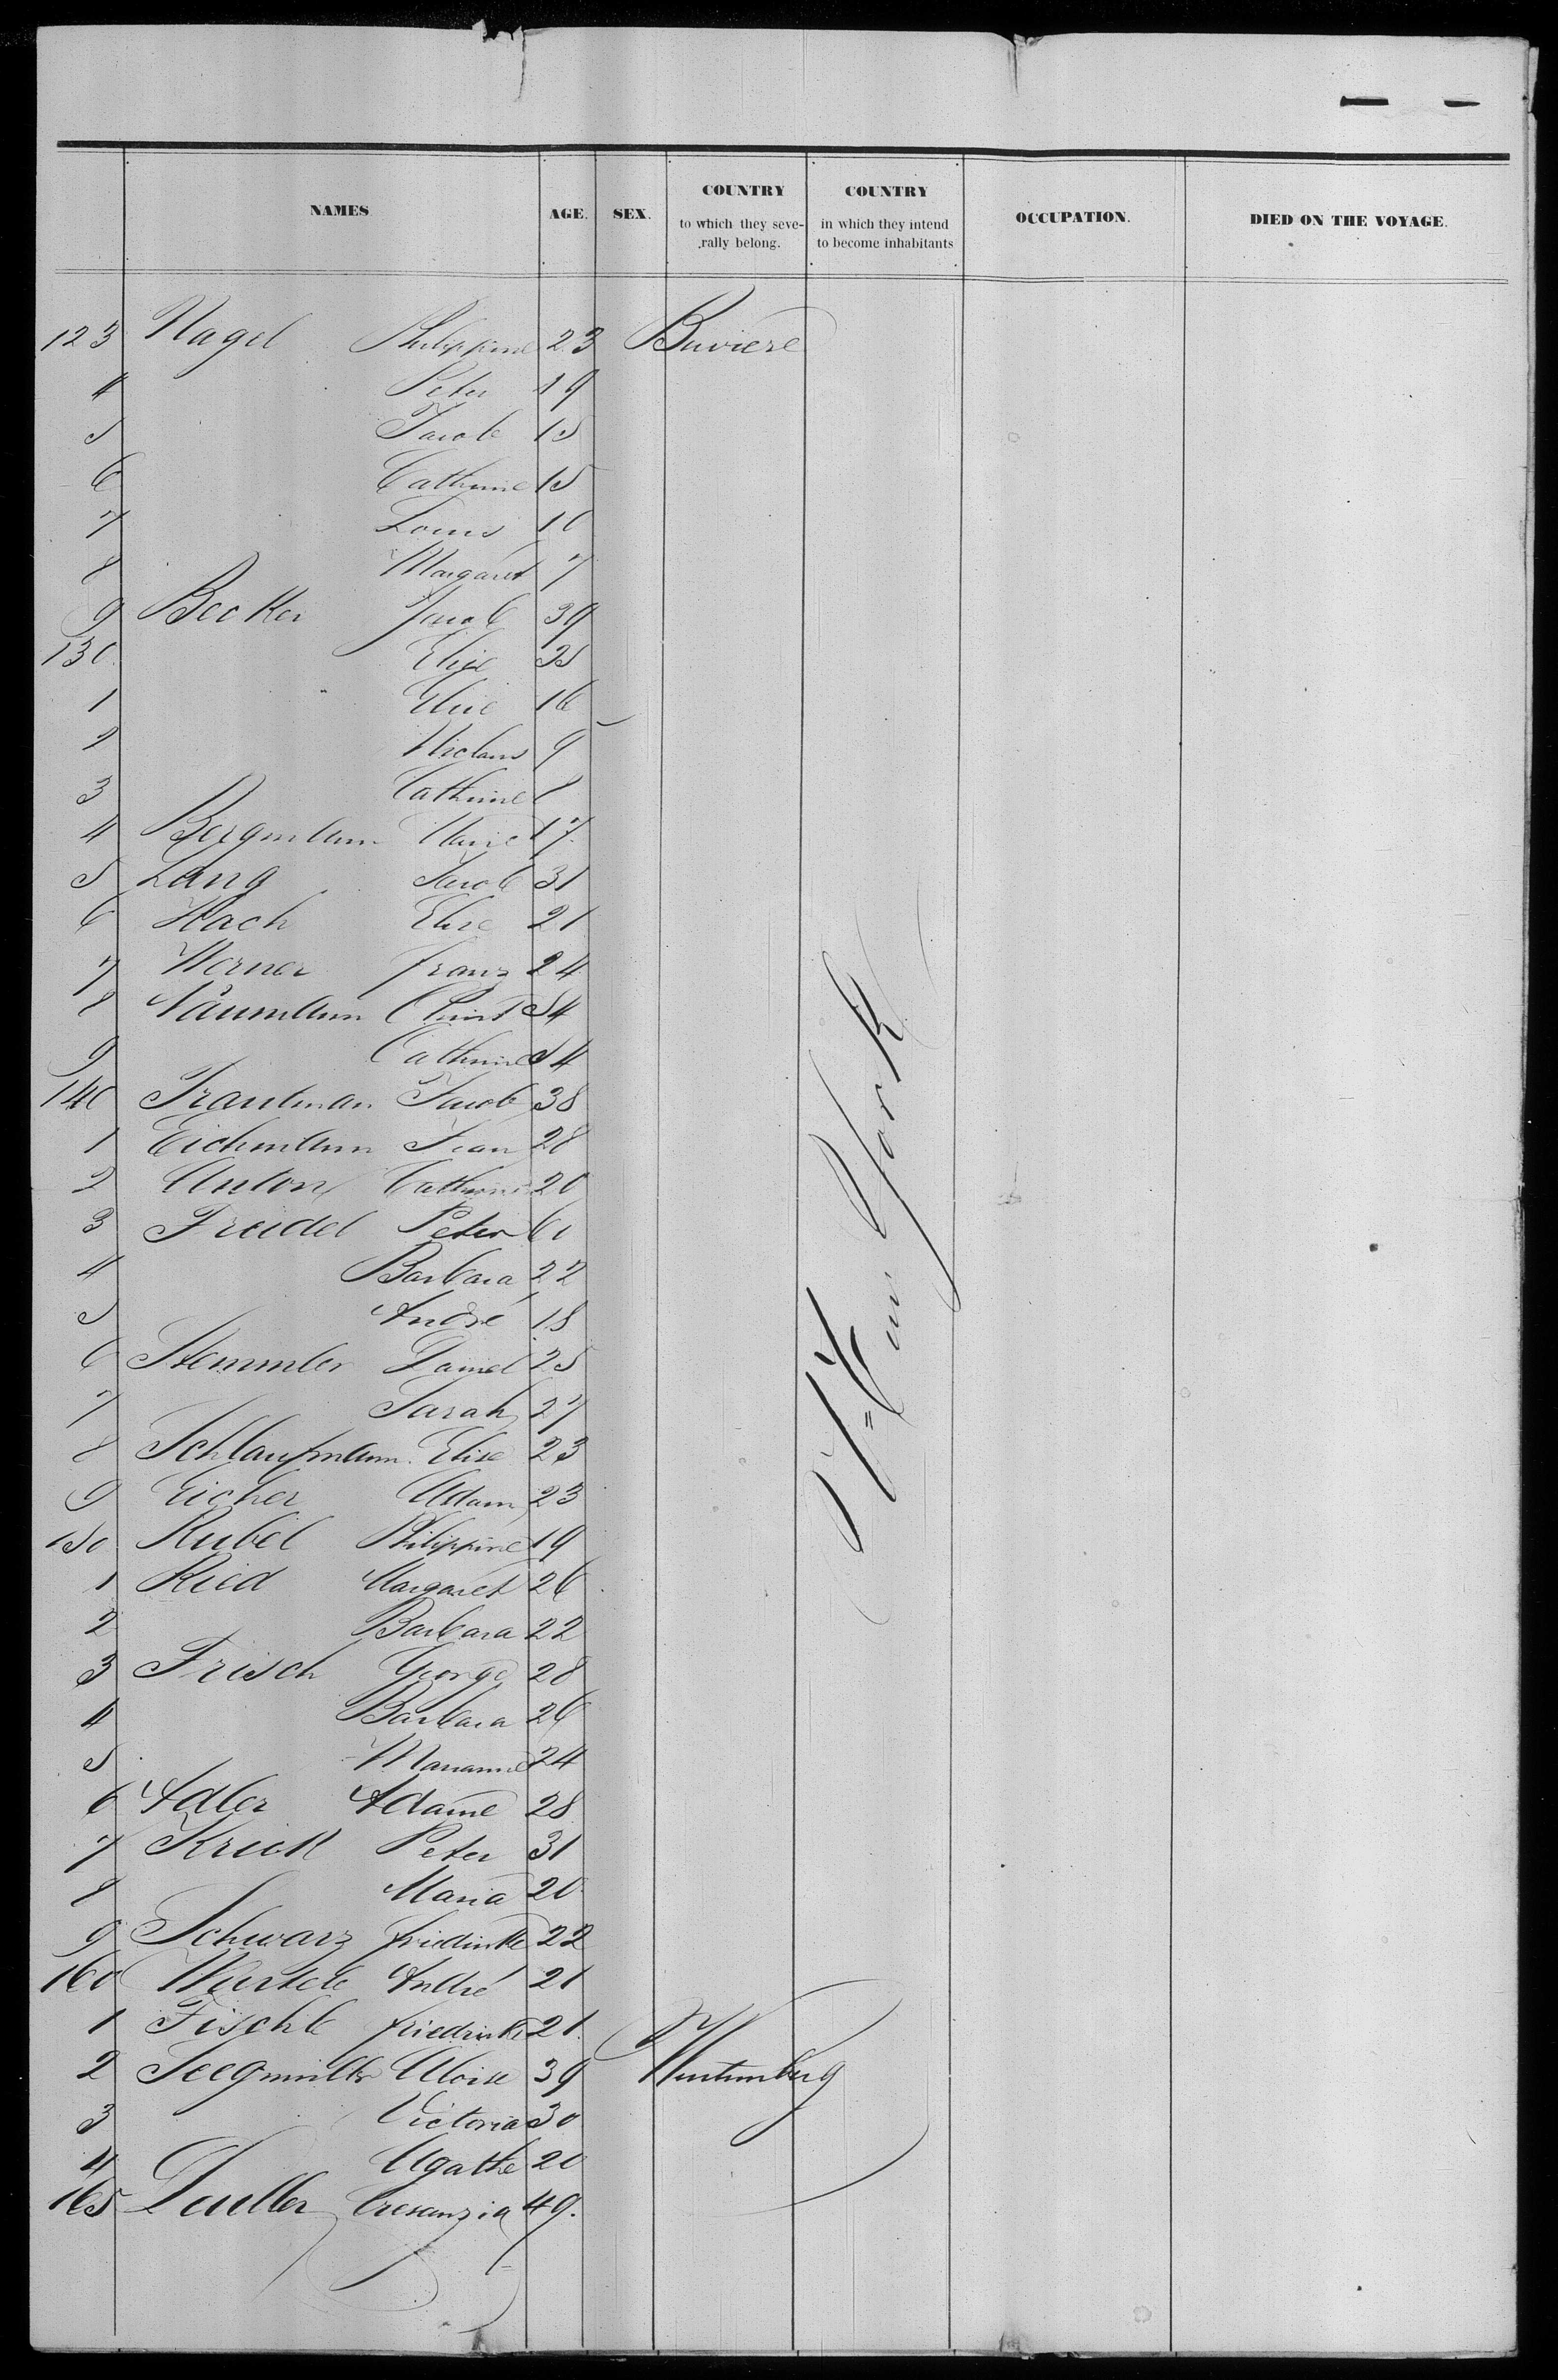 NAMES AGE. SEX. COUNTRY to which they seve-rally belong. COUNTRY in which they intend to become inhabitants OCCUPATION. DIED ON THE VOYAGE.
123 Nagel Philippine 23 Baviere
4 Peter 19
5 Jacob 15
6 Catherine 15
7 Louis 10
8 Margaret 7
9 Becker Jacob 39
130 Elise 35
1 Elise 16
2 Niclaus 9
3 Catherine
4 Bergmann Marie 17
5 Lang Jacob 31
6 Hach Elise 21
7 Werner Franz 24
8 Naumann Christ 54
9 Catherine 54
140 Trautman Jacob 38
1 Eichmann Jean 28
2 Anton Catherine 20
3 Freidel Peter 60
4 Barbara 22
5 André 18
6 Stemmler Daniel 25
7 Sarah 27
8 Schlaufmann Elise 23
9 Eicher Adam 23
150 Rubel Philippine 19
1 Ried Margaret 26
2 Barbara 22
3 Frisch George 28
4 Barbara 26
5 Marianne 24
6 Adler Adame 28
7 Krick Peter 31
8 Maria 20
9 Schwarz friedrike 22
160 Wurtele André 21
1 Fischle friedrike 21
2 Seegmiller Aloise 39 Wurtemberg
3 Victoria 30
4 Agathe 20
165 Creszanzia 49.
New York